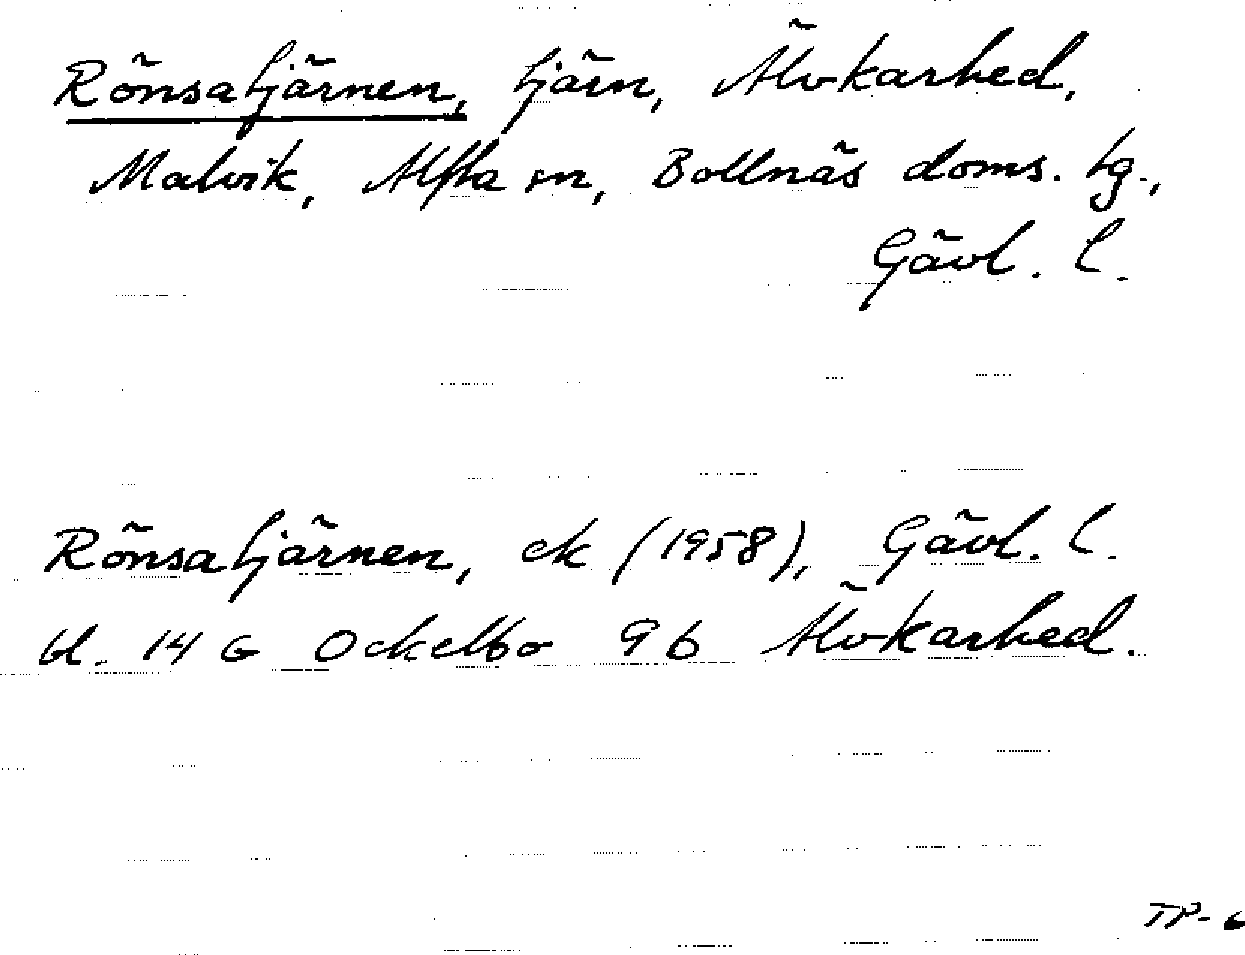 Rönsatjärnen, tjärn, Älvkarhed,
Malvik, Alfta sn, Bollnäs doms. tg.,
Gävl. l.
Rönsatjärnen, ek (1958), Gävl. l.
bl. 14 G Ockelbo 9 b Älvkarhed.